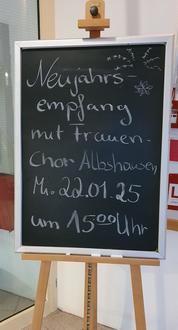 Neujahrs-
empfang
mit Frauen-
Chor Albshausen
Mi. 22.01.25
um 15⁰⁰ Uhr